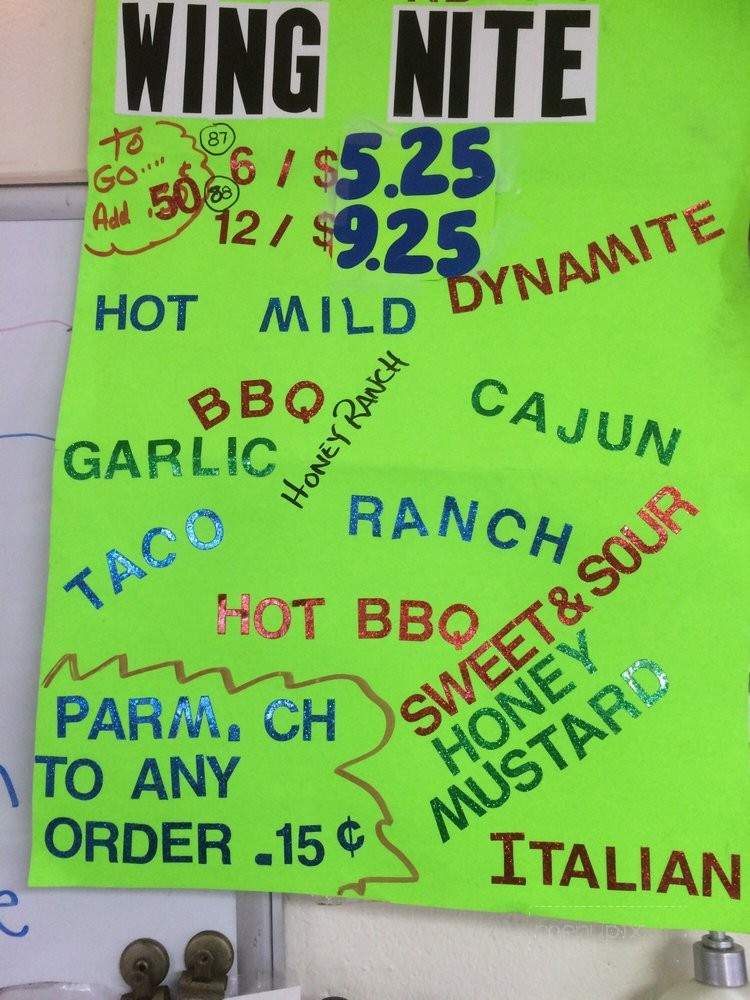 WING NITE
TO
GO....
Add .50¢
87
6 / $5.25
88
12 / $9.25
DYNAMITE
HOT MILD
BBQ
HONEY RANCH
CAJUN
GARLIC
RANCH
TACO
SWEET & SOUR
HOT BBQ
HONEY
MUSTARD
PARM. CH
TO ANY
ORDER .15 ¢
ITALIAN